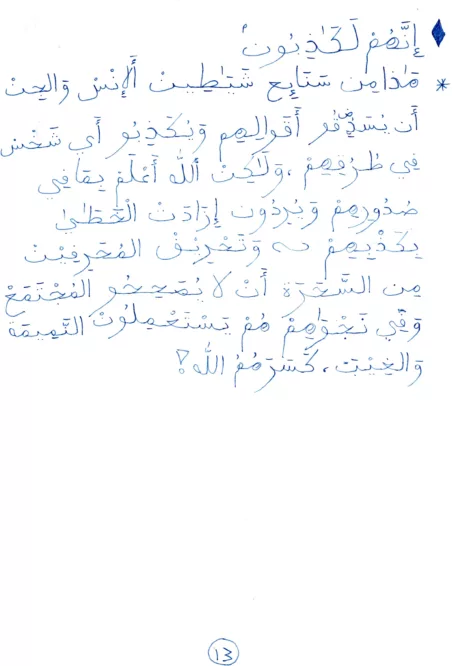 إِنَّهُمْ لَكَاذِبُونَ
* هَٰذَا مِن سَتَايِع شَيَٰطِينْ أَلْإِنْس وَالجِنْ
أَن يُسَدِّقُو أَقْوَالِهِم وَيُكَذِبُو أَي شَخْسْ
فِي طُرُقِهِمْ، وَلَٰكِنْ أَللَّه أَعْلَمْ بِمَافِي
صُدُورِهِمْ وَيُرِدُون إِزَادَتْ الْخَطَىٰ
بِكَذْبِهِمْ وَتَحْرِيفْ المُحَرِفِيْنْ
مِن السَّحَرَة أَنْ لَا يُصَحِحُو المُجْتَمَعْ
وَفِي نَجْوَاهِمْ هُمْ يَسْتَعْمِلُونْ النَّمِيمَة
وَالغِيبَتْ، كَسَرَهُمُ اللَّه؟
١٣